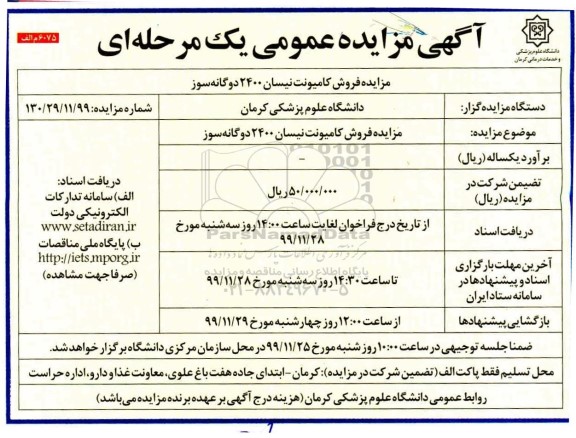 ۶۰۷۵ م الف
آگهی مزایده عمومی یک مرحله‌ای
دانشگاه علوم پزشکی
و خدمات درمانی کرمان
مزایده فروش کامیونت نیسان ۲۴۰۰ دوگانه سوز
دستگاه مزایده گزار:
دانشگاه علوم پزشکی کرمان
شماره مزایده: ۱۳۰/۲۹/۱۱/۹۹
موضوع مزایده:
مزایده فروش کامیونت نیسان ۲۴۰۰ دوگانه سوز
برآورد یکساله (ریال)
–
تضمین شرکت در
مزایده (ریال)
۵۰/۰۰۰/۰۰۰ ریال
دریافت اسناد
از تاریخ درج فراخوان لغایت ساعت ۱۴:۰۰ روز سه شنبه مورخ
۹۹/۱۱/۲۸
آخرین مهلت بارگزاری
اسناد و پیشنهادها در
سامانه ستاد ایران
تا ساعت ۱۴:۳۰ روز سه شنبه مورخ ۹۹/۱۱/۲۸
بازگشایی پیشنهادها
از ساعت ۱۲:۰۰ روز چهارشنبه مورخ ۹۹/۱۱/۲۹
دریافت اسناد:
الف) سامانه تدارکات
الکترونیکی دولت
www.setadiran.ir
ب) پایگاه ملی مناقصات
http://iets.mporg.ir
(صرفا جهت مشاهده)
ضمنا جلسه توجیهی در ساعت ۱۰:۰۰ روز شنبه مورخ ۹۹/۱۱/۲۵ در محل سازمان مرکزی دانشگاه برگزار خواهد شد.
محل تسلیم فقط پاکت الف (تضمین شرکت در مزایده): کرمان – ابتدای جاده هفت باغ علوی، معاونت غذا و دارو، اداره حراست
روابط عمومی دانشگاه علوم پزشکی کرمان (هزینه درج آگهی بر عهده برنده مزایده می‌باشد)
ParsNamadData
پایگاه اطلاع رسانی مناقصه و مزایده
۰۲۱-۸۸۳۴۹۶۷۰-۵